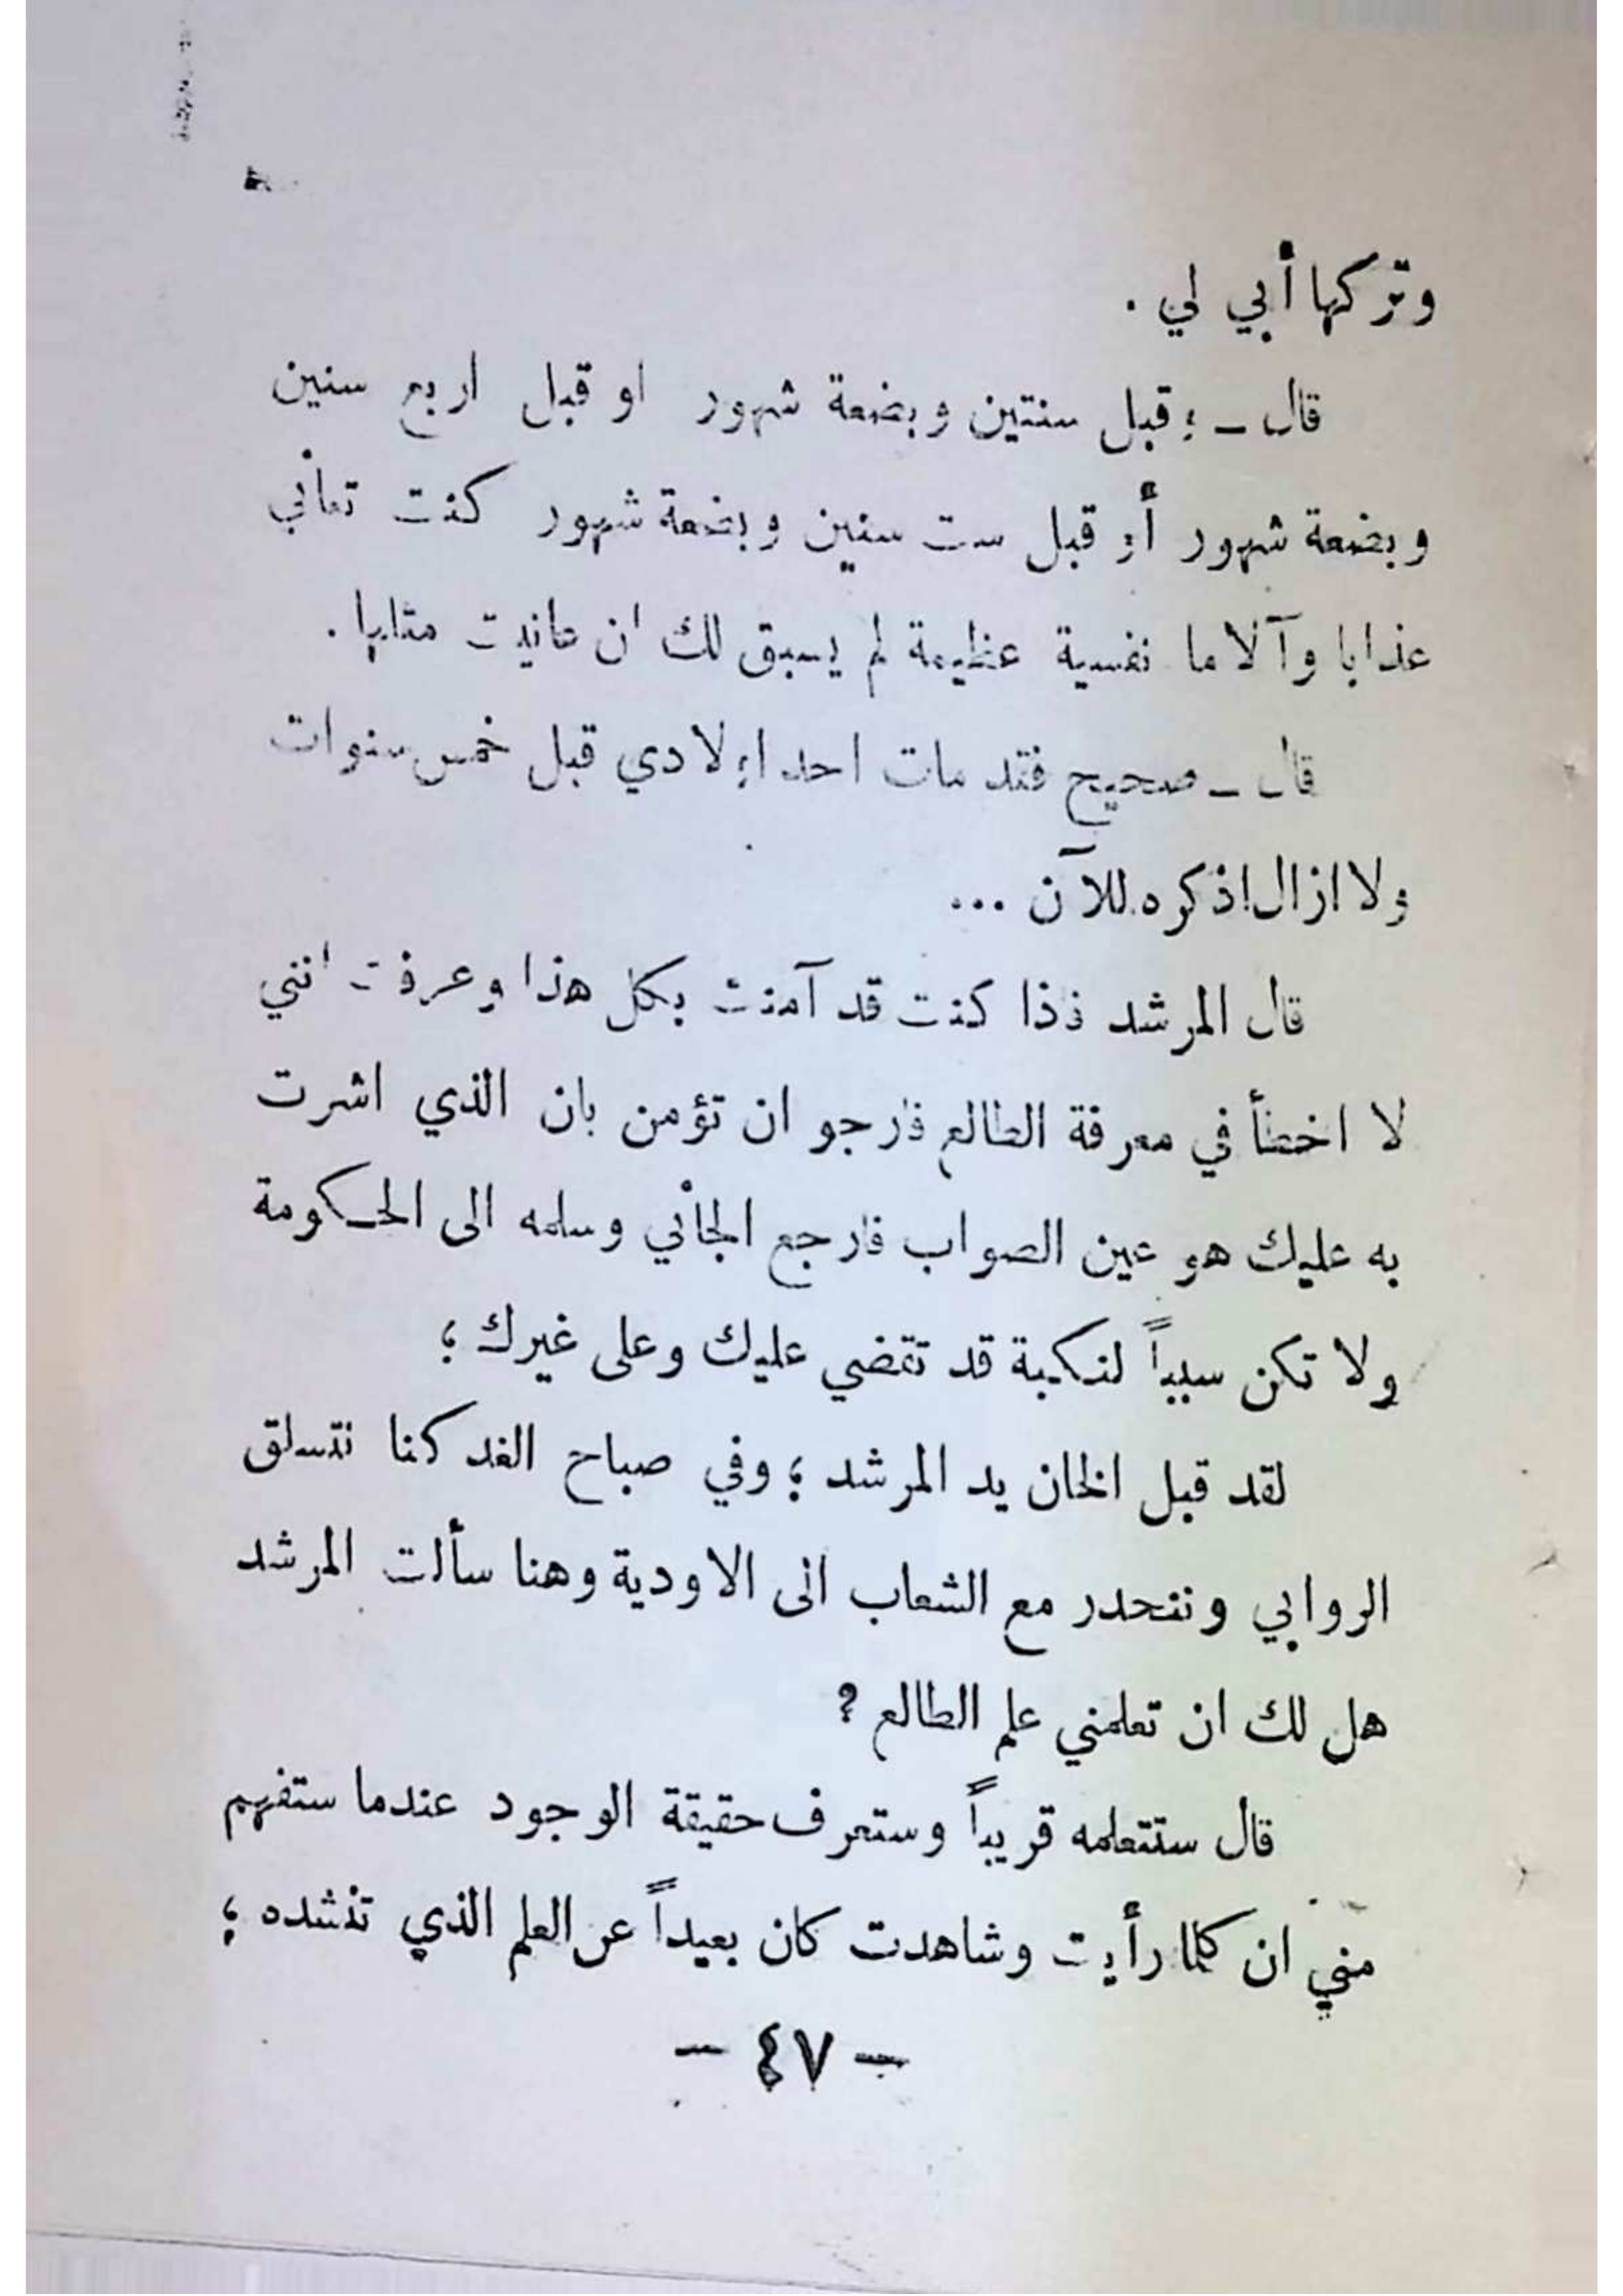 وتركها أبي لي .
قال ـ ؛ قبل سنتين وبضعة شهور او قبل اربع سنين
وبضعة شهور أو قبل ست سنين وبضعة شهور كنت تعاني
عذابا وآلاما نفسية عظيمة لم يسبق لك ان عانيت مثلها .
قال ـ صحيح فقد مات احد اولادي قبل خمس سنوات
ولا ازال اذكره للآن ...
قال المرشد فاذا كنت قد آمنت بكل هذا وعرفت انني
لا اخطأ في معرفة الطالع فارجو ان تؤمن بان الذي اشرت
به عليك هو عين الصواب فارجع الجاني وسلمه الى الحكومة
ولا تكن سبباً لنكبة قد تقضي عليك وعلى غيرك ؛
لقد قبل الخان يد المرشد ؛ وفي صباح الغد كنا نتسلق
الروابي وننحدر مع الشعاب الى الاودية وهنا سألت المرشد
هل لك ان تعلمني علم الطالع ?
قال ستتعلمه قريباً وستعرف حقيقة الوجود عندما ستفهم
مني ان كلما رأيت وشاهدت كان بعيداً عن العلم الذي تنشده ؛
- ٤٧ -